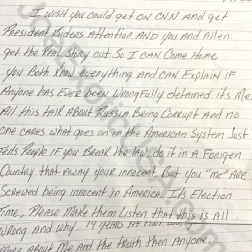 I wish you could get on CNN and get
President Bidens Attention AND you and Allen
get the Real Story out So I can Come Home
You Both Know everything and can Explain if
Anyone has Ever been Wrongfully detained its Me.
All this talk About Russia Being Corrupt and no
one cares what goes on in the American System Just
tells People if you Break the law do it in a Foreign
Country that away your innocent But you "mc" Are
Screwed being innocent in America. Its Election
Time, Please Make them Listen that this is All
Wrong And why... 19 years At that
More about Me And the Truth then Anyone.